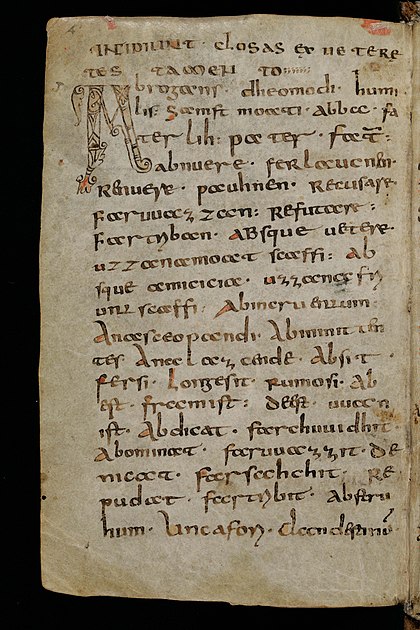 INCIPIUNT · CLOSAS EX VETERE
TES TAMEN TO
Abrogans · dheomodi · humi
lis · samft moati · abba · fa
ter lih : pater · fat̄
abnuere · ferlaucnen
Renuere · pauhnen · Recusare
faruuazzan : Refutare :
fartriban · Absque uetere
uzzanamoat scaffi · Ab
sque amicicia · uzzana fri
untscaffi ·
tes Anelazende · Absit ·
fersi · Longesit · rumosi · Ab
est · framist : deest · uuan
ist · Abdicat · farchuuidhit
Abominat · faruuazzit · De
farsahchit · Re
pudiat · fartribit ·
hum · Uncafori ·